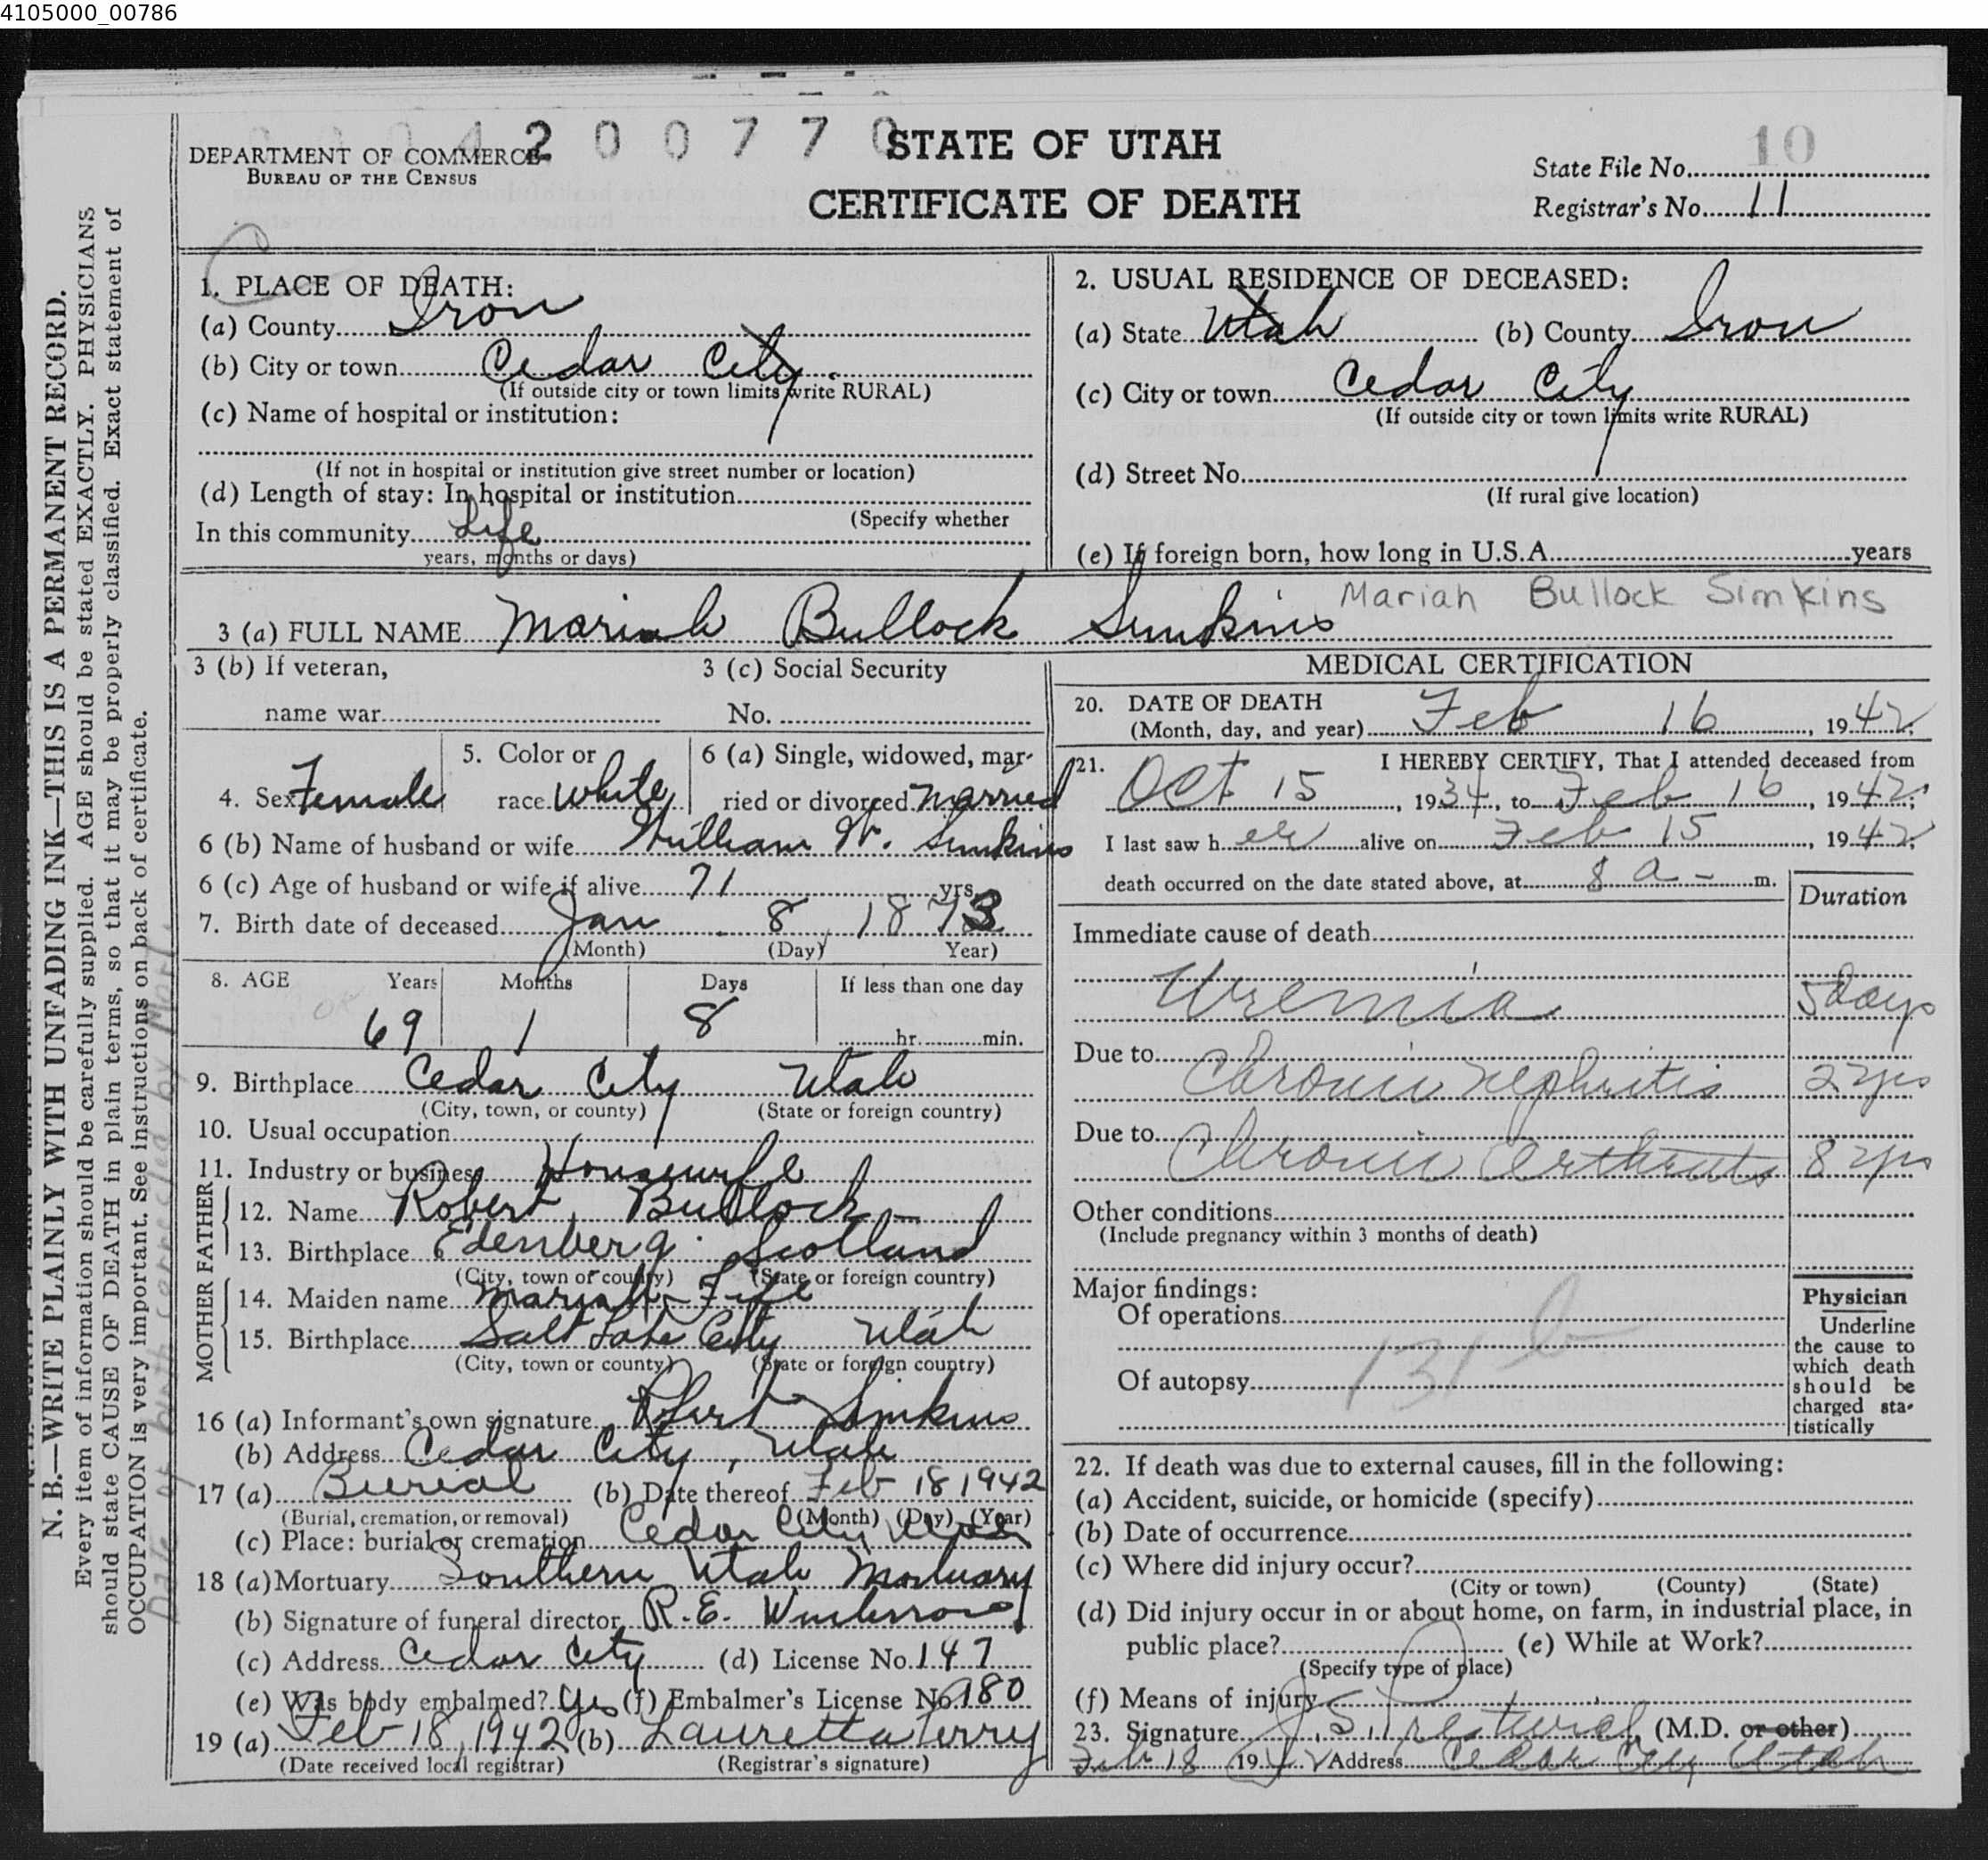 4105000_00786
DEPARTMENT OF COMMERCE
BUREAU OF THE CENSUS
2 0 0 7 7 0
STATE OF UTAH
CERTIFICATE OF DEATH
10
State File No.
Registrar's No. 11
1. PLACE OF DEATH:
(a) County Iron
(b) City or town Cedar City.
(If outside city or town limits write RURAL)
(c) Name of hospital or institution:
(If not in hospital or institution give street number or location)
(d) Length of stay: In hospital or institution
(Specify whether
In this community Life
years, months or days)
2. USUAL RESIDENCE OF DECEASED:
(a) State Utah (b) County Iron
(c) City or town Cedar City
(If outside city or town limits write RURAL)
(d) Street No.
(If rural give location)
(e) If foreign born, how long in U.S.A. years
3 (a) FULL NAME Mariah Bullock Simkins Mariah Bullock Simkins
3 (b) If veteran,
name war
3 (c) Social Security
No.
4. Sex Female
5. Color or
race White
6 (a) Single, widowed, mar-
ried or divorced Married
6 (b) Name of husband or wife William W. Simkins
6 (c) Age of husband or wife if alive 71 yrs.
7. Birth date of deceased Jan 8, 1873
(Month) (Day) Year)
8. AGE Years Months Days If less than one day
OK 69 1 8 hr. min.
9. Birthplace Cedar City Utah
(City, town, or county) (State or foreign country)
10. Usual occupation
11. Industry or business Housewife
FATHER
12. Name Robert Bullock
13. Birthplace Edenberg Scotland
(City, town or county) (State or foreign country)
MOTHER
14. Maiden name Mariah Fife
15. Birthplace Salt Lake City Utah
(City, town or county) (State or foreign country)
16 (a) Informant's own signature Robert Simkins
(b) Address Cedar City, Utah
17 (a) Burial (b) Date thereof Feb 18 1942
(Burial, cremation, or removal) (Month) (Day) (Year)
(c) Place: burial or cremation Cedar City Utah
18 (a) Mortuary Southern Utah Mortuary
(b) Signature of funeral director R. E.
(c) Address Cedar City (d) License No. 147
(e) Was body embalmed? Yes (f) Embalmer's License No. 180
19 (a) Feb 18, 1942 (b) Lauretta Perry
(Date received local registrar) (Registrar's signature)
MEDICAL CERTIFICATION
20. DATE OF DEATH
(Month, day, and year) Feb 16, 1942
21. I HEREBY CERTIFY, That I attended deceased from
Oct 15, 1934, to Feb 16, 1942;
I last saw her alive on Feb 15, 1942;
death occurred on the date stated above, at 8 a - m.
Duration
Immediate cause of death
Uremia 5 days
Due to
Chronic nephritis 2 yrs
Due to
Chronic Arthritis 8 yrs
Other conditions
(Include pregnancy within 3 months of death)
Major findings:
Of operations
131 b
Of autopsy
Physician
Underline
the cause to
which death
should be
charged sta-
tistically
22. If death was due to external causes, fill in the following:
(a) Accident, suicide, or homicide (specify)
(b) Date of occurrence
(c) Where did injury occur?
(City or town) (County) (State)
(d) Did injury occur in or about home, on farm, in industrial place, in
public place? (e) While at Work?
(Specify type of place)
(f) Means of injury
23. Signature J. S. Prestwich (M.D. or other)
Feb 18 1942 Address Cedar City Utah
N. B.—WRITE PLAINLY WITH UNFADING INK—THIS IS A PERMANENT RECORD.
Every item of information should be carefully supplied. AGE should be stated EXACTLY. PHYSICIANS
should state CAUSE OF DEATH in plain terms, so that it may be properly classified. Exact statement of
OCCUPATION is very important. See instructions on back of certificate.
Date of birth corrected by Mort.